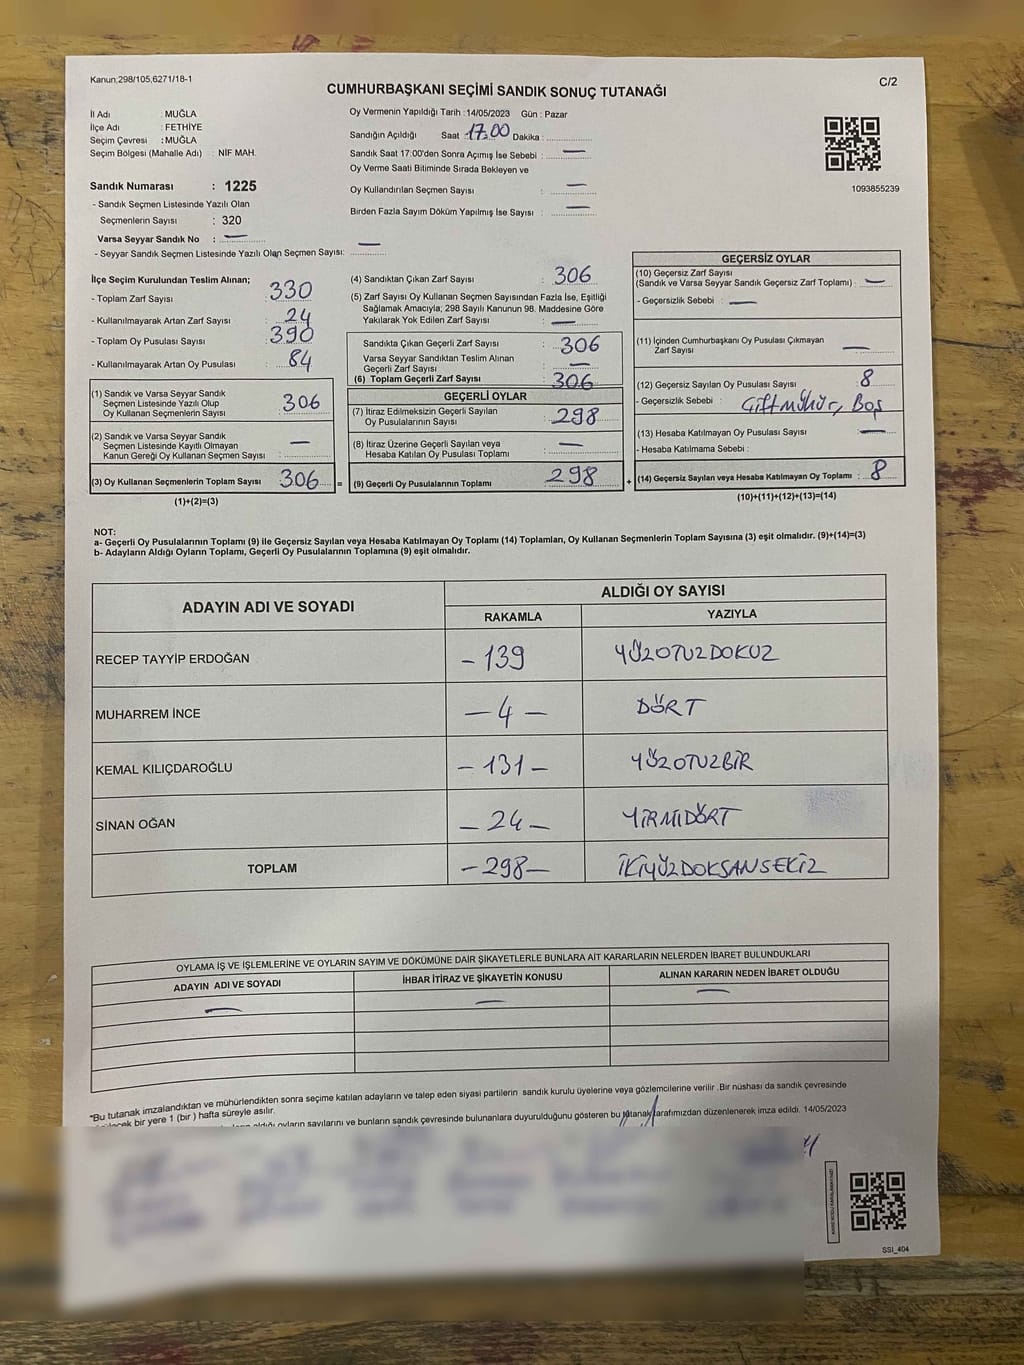 Kanun:298/105,6271/18-1
C/2
CUMHURBAŞKANI SEÇİMİ SANDIK SONUÇ TUTANAĞI
İl Adı : MUĞLA
İlçe Adı : FETHİYE
Seçim Çevresi : MUĞLA
Seçim Bölgesi (Mahalle Adı) : NİF MAH.
Sandık Numarası : 1225
- Sandık Seçmen Listesinde Yazılı Olan
Seçmenlerin Sayısı : 320
Varsa Seyyar Sandık No : —
- Seyyar Sandık Seçmen Listesinde Yazılı Olan Seçmen Sayısı: —
Oy Vermenin Yapıldığı Tarih :14/05/2023 Gün : Pazar
Sandığın Açıldığı Saat 17.00 Dakika :
Sandık Saat 17:00'den Sonra Açımış İse Sebebi : —
Oy Verme Saati Bitiminde Sırada Bekleyen ve
Oy Kullandırılan Seçmen Sayısı : —
Birden Fazla Sayım Döküm Yapılmış İse Sayısı : —
1093855239
İlçe Seçim Kurulundan Teslim Alınan;
- Toplam Zarf Sayısı : 330
- Kullanılmayarak Artan Zarf Sayısı : 24
- Toplam Oy Pusulası Sayısı : 390
- Kullanılmayarak Artan Oy Pusulası : 84
(1) Sandık ve Varsa Seyyar Sandık
Seçmen Listesinde Yazılı Olup
Oy Kullanan Seçmenlerin Sayısı : 306
(2) Sandık ve Varsa Seyyar Sandık
Seçmen Listesinde Kayıtlı Olmayan
Kanun Gereği Oy Kullanan Seçmen Sayısı : —
(3) Oy Kullanan Seçmenlerin Toplam Sayısı : 306 =
(1)+(2)=(3)
(4) Sandıktan Çıkan Zarf Sayısı : 306
(5) Zarf Sayısı Oy Kullanan Seçmen Sayısından Fazla İse, Eşitliği
Sağlamak Amacıyla; 298 Sayılı Kanunun 98. Maddesine Göre
Yakılarak Yok Edilen Zarf Sayısı : —
Sandıkta Çıkan Geçerli Zarf Sayısı : 306
Varsa Seyyar Sandıktan Teslim Alınan
Geçerli Zarf Sayısı : —
(6) Toplam Geçerli Zarf Sayısı : 306
GEÇERLİ OYLAR
(7) İtiraz Edilmeksizin Geçerli Sayılan
Oy Pusulalarının Sayısı : 298
(8) İtiraz Üzerine Geçerli Sayılan veya
Hesaba Katılan Oy Pusulası Toplamı : —
(9) Geçerli Oy Pusulalarının Toplamı : 298 +
GEÇERSİZ OYLAR
(10) Geçersiz Zarf Sayısı
(Sandık ve Varsa Seyyar Sandık Geçersiz Zarf Toplamı) : —
- Geçersizlik Sebebi : —
(11) İçinden Cumhurbaşkanı Oy Pusulası Çıkmayan
Zarf Sayısı —
(12) Geçersiz Sayılan Oy Pusulası Sayısı : 8
- Geçersizlik Sebebi : Çiftmühür, Boş
(13) Hesaba Katılmayan Oy Pusulası Sayısı : —
- Hesaba Katılmama Sebebi :
(14) Geçersiz Sayılan veya Hesaba Katılmayan Oy Toplamı : 8
(10)+(11)+(12)+(13)=(14)
NOT:
a- Geçerli Oy Pusulalarının Toplamı (9) ile Geçersiz Sayılan veya Hesaba Katılmayan Oy Toplamı (14) Toplamları, Oy Kullanan Seçmenlerin Toplam Sayısına (3) eşit olmalıdır. (9)+(14)=(3)
b- Adayların Aldığı Oyların Toplamı, Geçerli Oy Pusulalarının Toplamına (9) eşit olmalıdır.
ADAYIN ADI VE SOYADI
ALDIĞI OY SAYISI
RAKAMLA YAZIYLA
RECEP TAYYİP ERDOĞAN -139 YÜZOTUZDOKUZ
MUHARREM İNCE -4- DÖRT
KEMAL KILIÇDAROĞLU -131- YÜZOTUZBİR
SİNAN OĞAN -24- YİRMİDÖRT
TOPLAM -298- İKİYÜZDOKSANSEKİZ
OYLAMA İŞ VE İŞLEMLERİNE VE OYLARIN SAYIM VE DÖKÜMÜNE DAİR ŞİKAYETLERLE BUNLARA AİT KARARLARIN NELERDEN İBARET BULUNDUKLARI
ADAYIN ADI VE SOYADI İHBAR İTİRAZ VE ŞİKAYETİN KONUSU ALINAN KARARIN NEDEN İBARET OLDUĞU
— — —
*Bu tutanak imzalandıktan ve mühürlendikten sonra seçime katılan adayların ve talep eden siyasi partilerin sandık kurulu üyelerine veya gözlemcilerine verilir .Bir nüshası da sandık çevresinde
bir yere 1 (bir ) hafta süreyle asılır.
oyların sayılarını ve bunların sandık çevresinde bulunanlara duyurulduğunu gösteren bu tutanak tarafımızdan düzenlenerek imza edildi. 14/05/2023
SSI_404